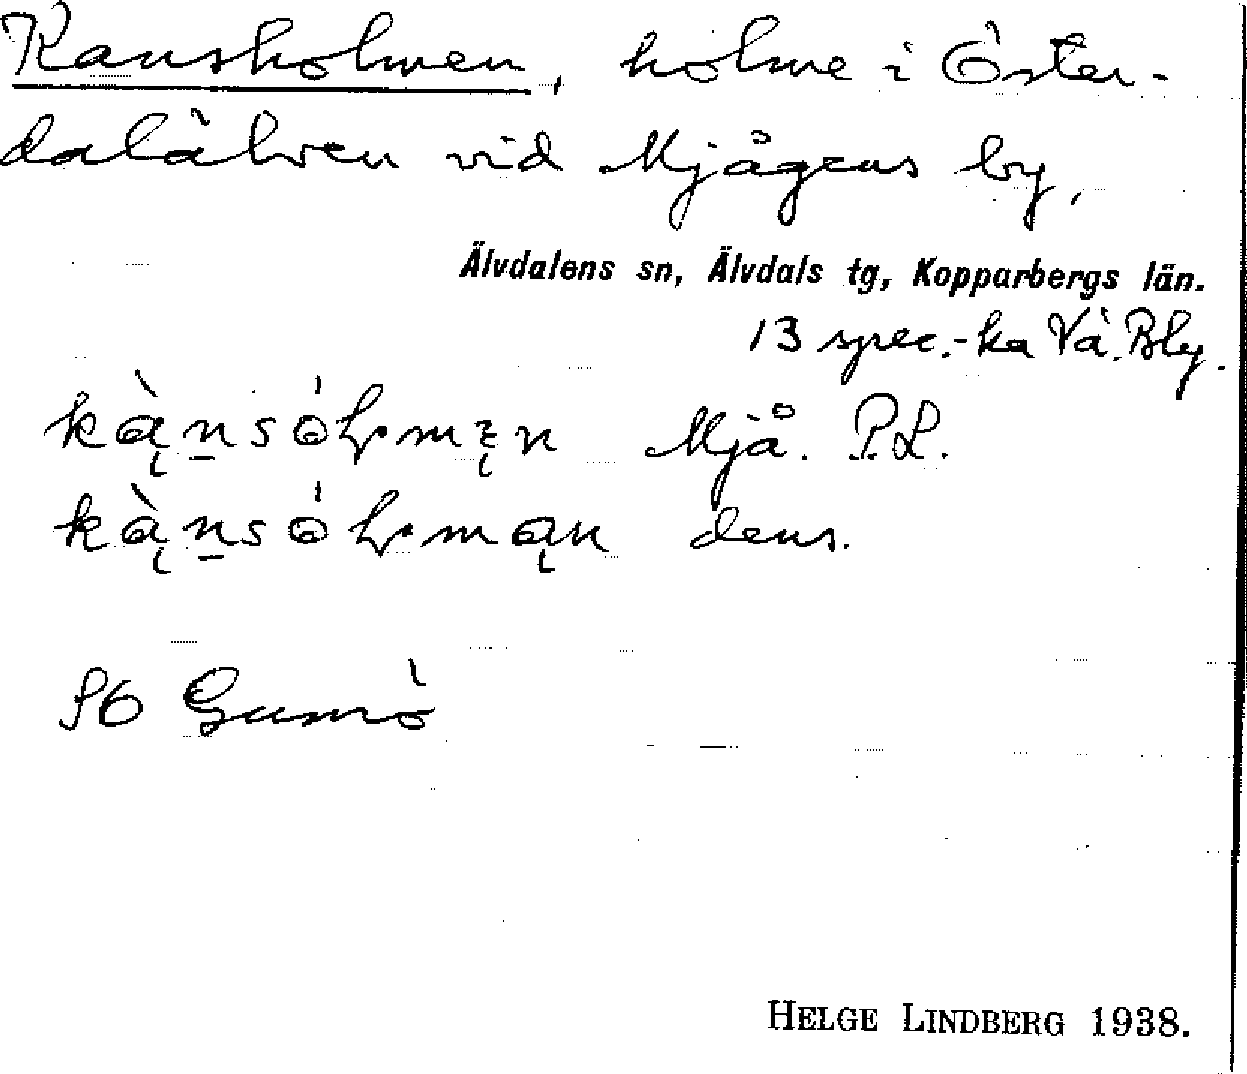 Kansholmen, holme i Öster-
dalälven vid Mjågens by,
Älvdalens sn, Älvdals tg, Kopparbergs län.
13 spec.-ka Vä. Bly.
Mjå. P.L.
dens.
Gumö
HELGE LINDBERG 1938.